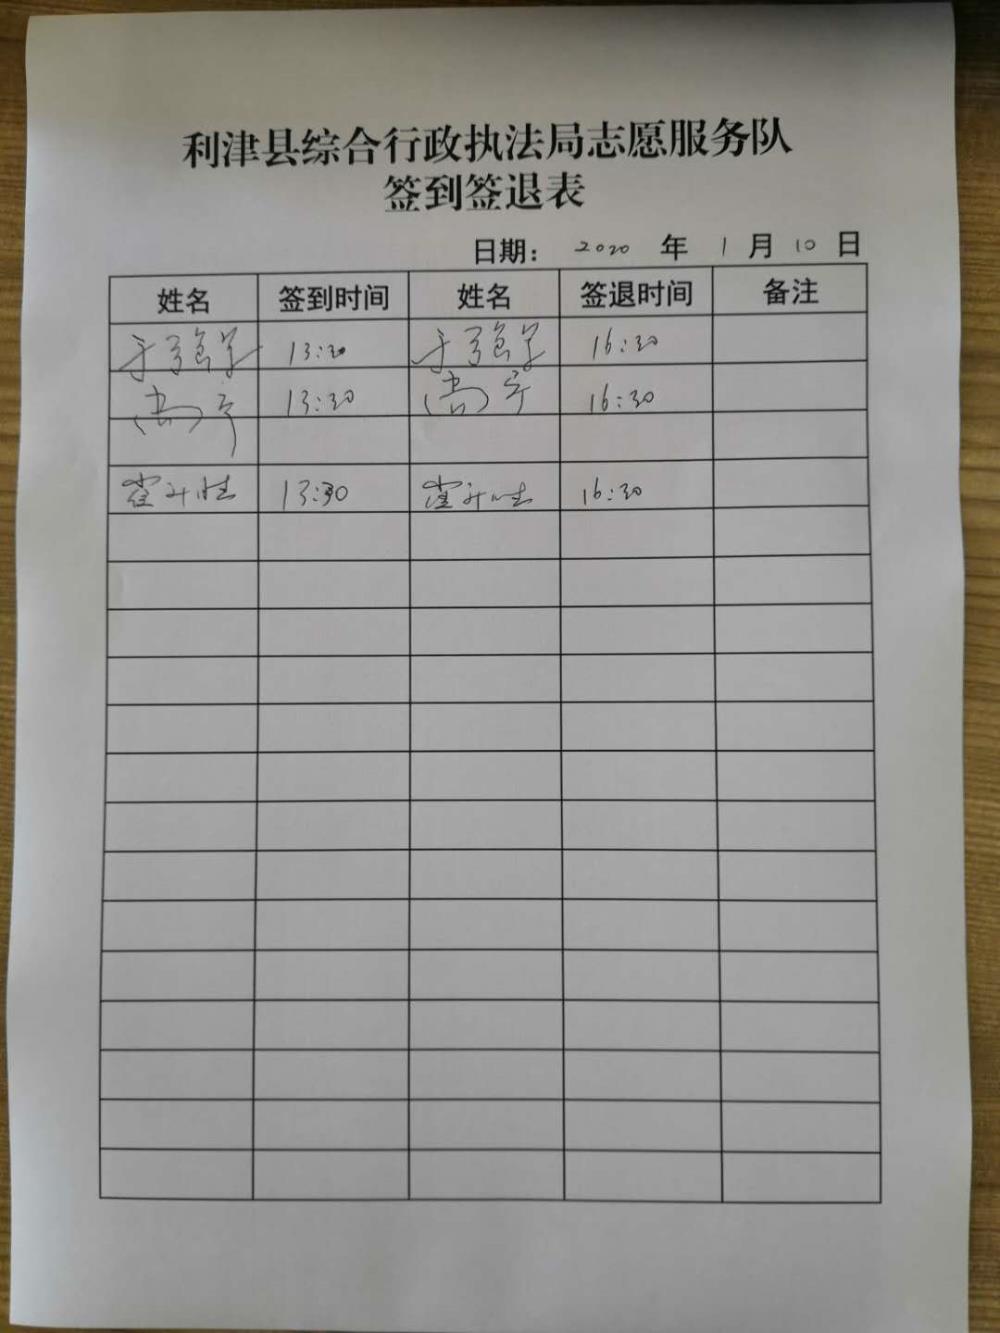 利津县综合行政执法局志愿服务队
签到签退表
日期： 2020 年 1 月 10 日
姓名 签到时间 姓名 签退时间 备注
13:30 16:30
13:30 16:30
13:30 16:30